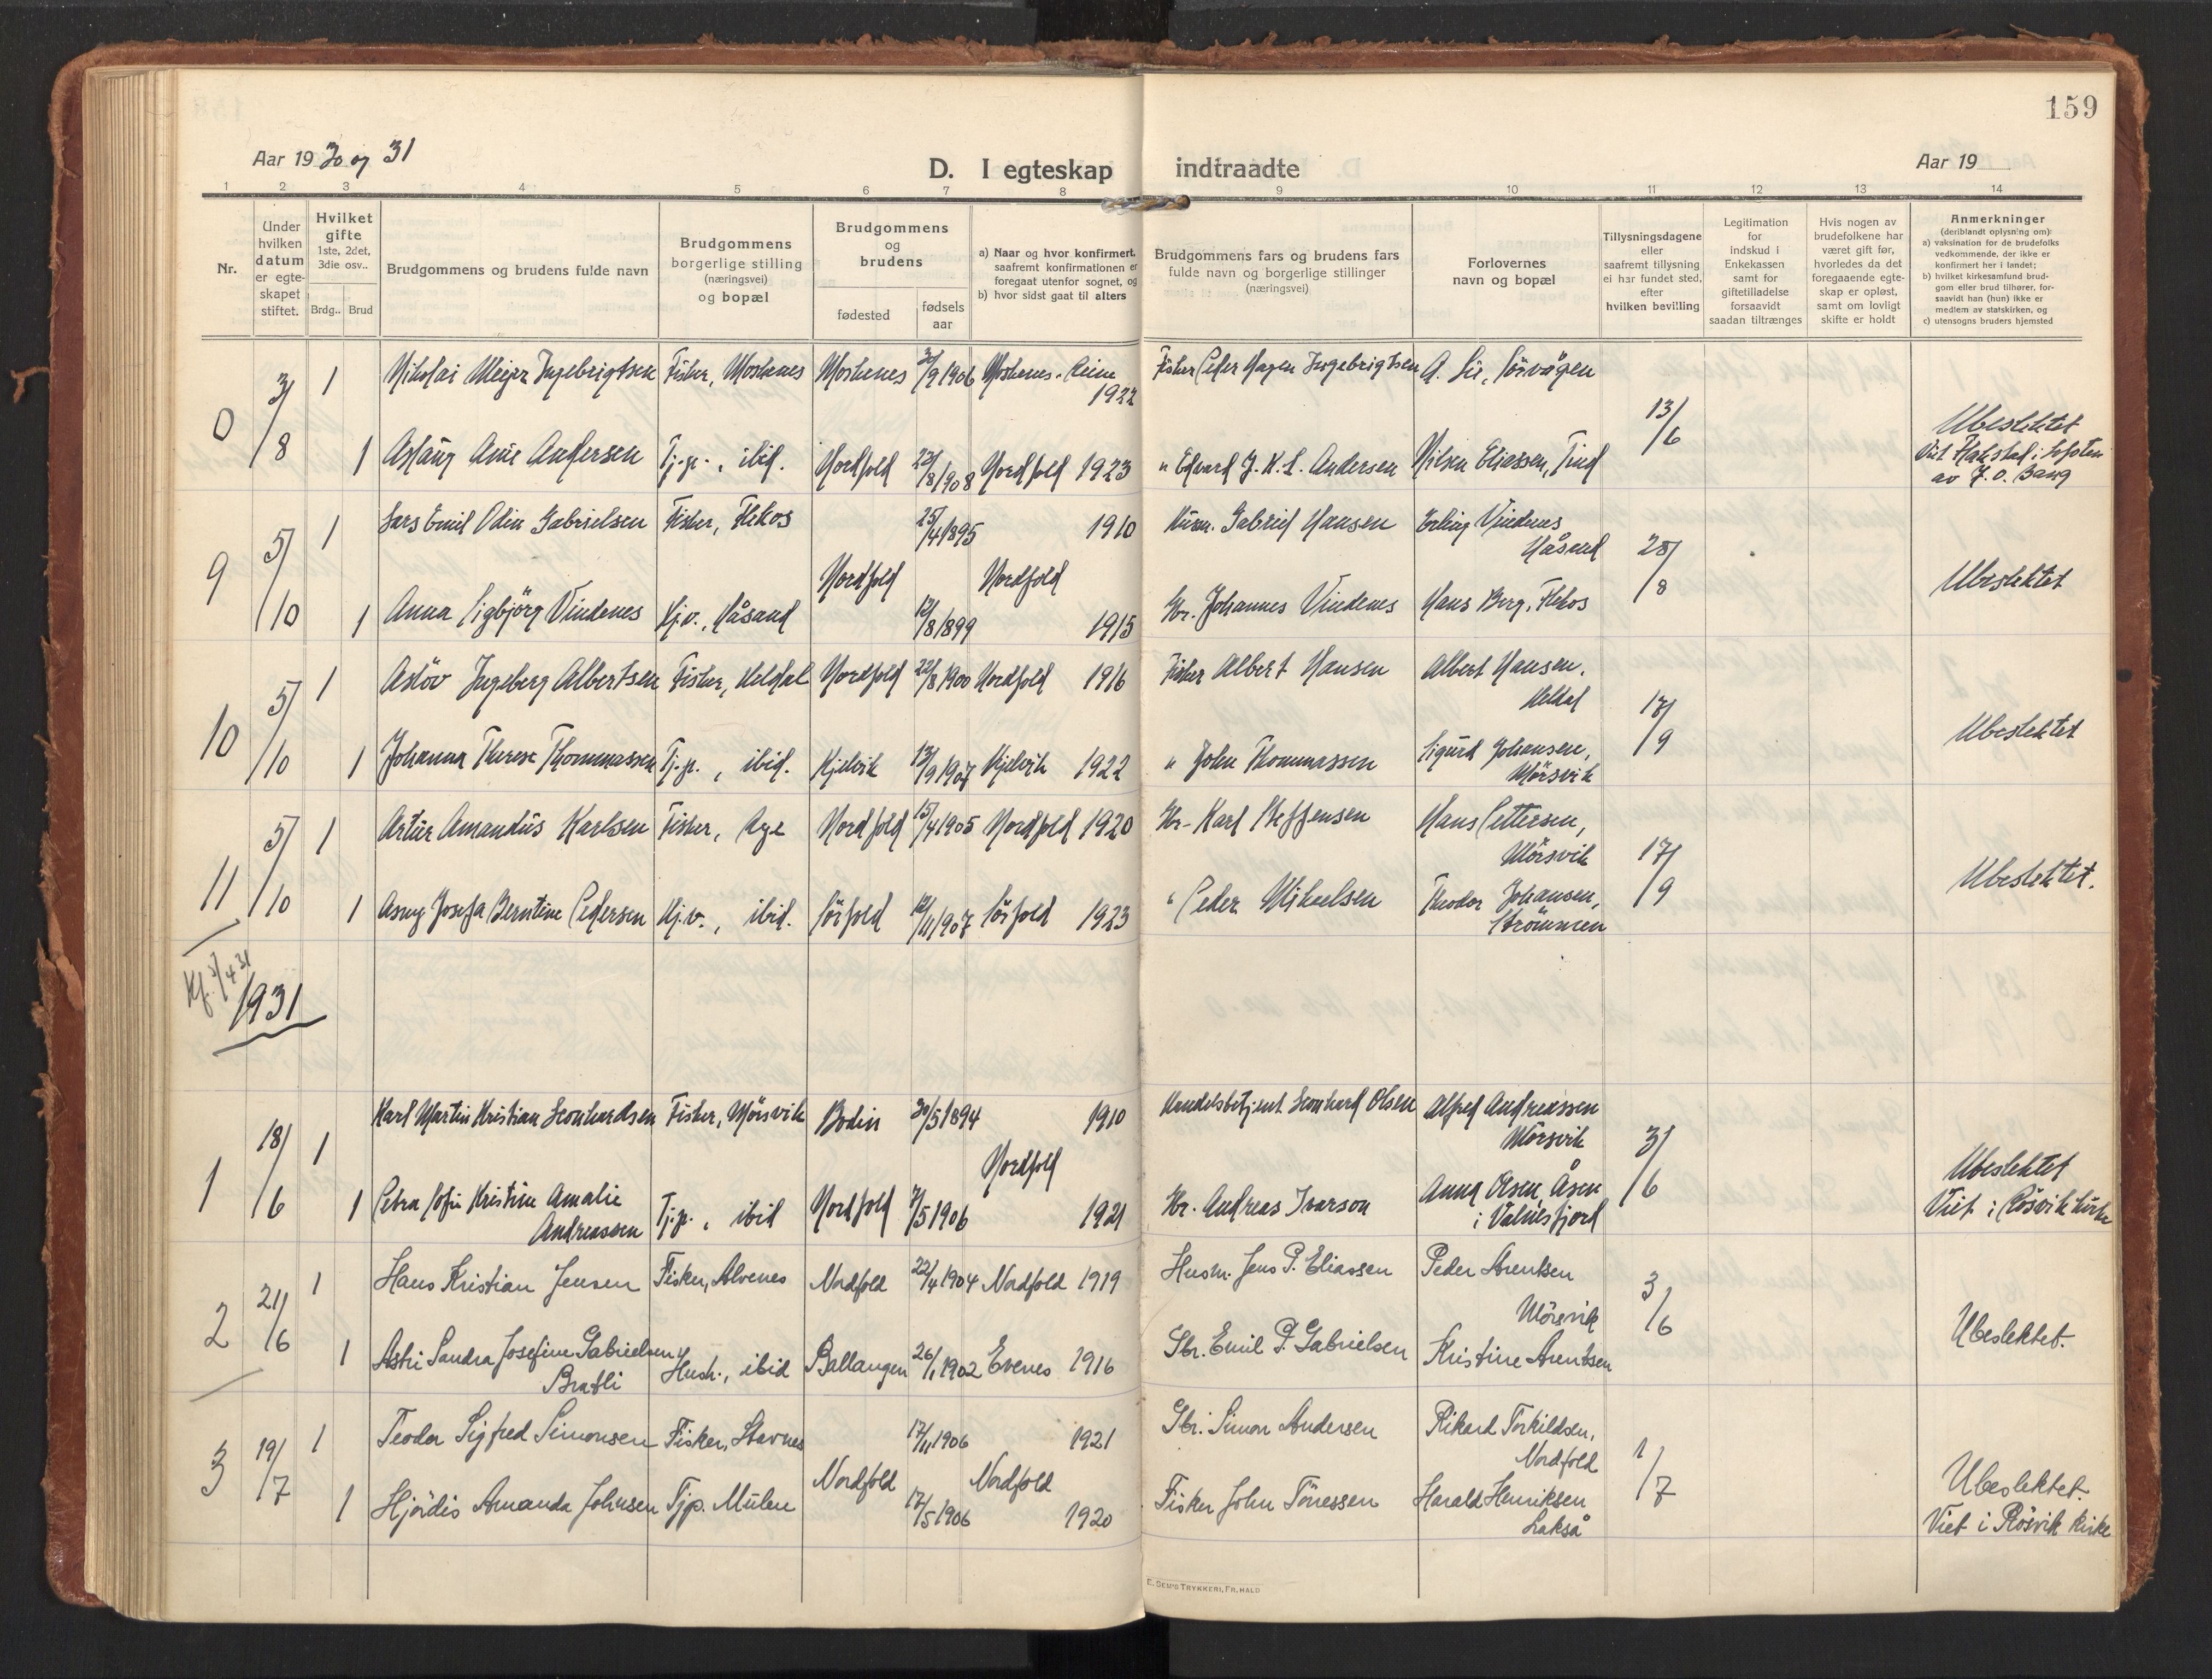 159
Aar 19 30 og 31
D. I egteskap indtraadte
Aar 19
1 2 3 4 5 6 7 8 9 10 11 12 13 14
Nr.
Under hvilken datum er egte-skapet stiftet.
Hvilket gifte 1ste, 2det, 3die osv..
Brdg.. Brud
Brudgommens og brudens fulde navn
Brudgommens borgerlige stilling (næringsvei) og bopæl
Brudgommens og brudens
fødested
fødsels aar
a) Naar og hvor konfirmert, saafremt konfirmationen er foregaat utenfor sognet, og
b) hvor sidst gaat til alters
Brudgommens fars og brudens fars fulde navn og borgerlige stillinger (næringsvei)
Forlovernes navn og bopæl
Tillysningsdagene eller saafremt tillysning ei har fundet sted, efter hvilken bevilling
Legitimation for indskud i Enkekassen samt for giftetilladelse forsaavidt saadan tiltrænges
Hvis nogen av brudefolkene har været gift før, hvorledes da det foregaaende egte-skap er opløst, samt om lovligt skifte er holdt
Anmerkninger (deriblandt oplysning om):
a) vaksination for de brudefolks vedkommende, der ikke er konfirmert her i landet;
b) hvilket kirkesamfund brud-gom eller brud tilhører, for-saavidt han (hun) ikke er medlem av statskirken, og
c) utensogns bruders hjemsted
0 3/8 1 Nikolai Meyer Ingebrigtsen Fisker, Moskenes Moskenes 30/9 1906 Moskenes. Reine 1922 Fisker Peder Hagen Ingebrigtsen A. Lie, Sörvågen 13/6
1 Aslaug Anie Andersen Tj.p., ibid. Nordfold 22/8 1908 Nordfold 1923 " Edvard J. K. L. Andersen Nilsen Eliassen, Tind
Ubeslektet
Viet Flakstad i Lofoten
av J. O. Bang
9 5/10 1 Lars Emil Odin Gabrielsen Fisker, Flekos 25/4 1895 1910 Husm. Gabriel Hansen Erling Vindenes
Håsand 28/8
Nordfold Nordfold Ubeslektet
1 Anna Sigbjörg Vindenes Hj.v., Håsand 12/8 1899 1915 Gbr. Johannes Vindenes Hans Berg, Flekos
10 5/10 1 Aslöv Ingeberg Albertsen Fisker, Heldal Nordfold 22/8 1900 Nordfold 1916 Fisker Albert Hansen Albert Hansen.
Heldal 17/9
Ubeslektet
1 Johanna Therese Thommassen Tj.p., ibid. Kjelvik 13/9 1907 Kjelvik 1922 " John Thommassen Sigurd Johansen,
Mörsvik
11 5/10 1 Artur Amandus Karlsen Fisker, Age Nordfold 15/4 1905 Nordfold 1920 Gbr. Karl Steffensen Hans Pettersen,
Mörsvik 17/9
Ubeslektet.
1 Asny Josefa Berntine Pedersen Hj.v., ibid. Sörfold 12/11 1907 Sörfold 1923 " Peder Mikkelsen Theodor Johansen,
Strömmen
1931
1 18/6 1 Karl Martin Kristian Leonhardsen Fisker, Mörsvik Bodin 30/5 1894 1910 Handelsbetjent Leonhard Olsen Alfred Andreassen
Mörsvik 3/6
Nordfold
1 Petra Sofie Kristine Amalie
Andreassen Tj.p., ibid Nordfold 7/5 1906 1921 Gbr. Andreas Ivarson Anna Olsen Åsen
i Valnesfjord
Ubeslektet
Viet i Rösvik kirke
2 21/6 1 Hans Kristian Jensen Fisker, Alvenes Nordfold 22/4 1904 Nordfold 1919 Husm. Jens P. Eliassen Peder Arentsen
Mörsvik 3/6
Ubeslektet.
1 Astri Sandra Josefine Gabrielsen
Bratli Hush., ibid Ballangen 26/1 1902 Evenes 1916 Gbr. Emil P. Gabrielsen Kristine Arentsen
3 19/7 1 Teodor Sigfred Simonsen Fisker, Stavnes 17/11 1906 1921 Gbr. Simon Andersen Rikard Torkildsen,
Nordfold 1/7
Nordfold Nordfold
1 Hjördis Amanda Johnsen Tjp. Mulen 17/5 1906 1920 Fisker John Tönessen Harald Henriksen
Lakså
Ubeslektet.
Viet i Rösvik kirke
E. SEM'S TRYKKERI, FR. HALD